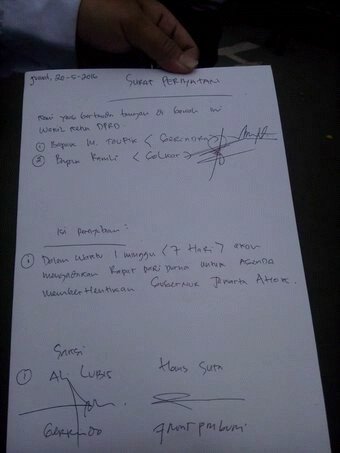 Jumat, 20-5-2016
SURAT PERNYATAAN
Kami yang bertanda tangan di bawah ini
Wakil Ketua DPRD
① Bapak M. TAUFIK < GERINDRA >
② Bapak Ramli < GOLKAR >
Isi Pernyataan :
① Dalam waktu 1 minggu < 7 Hari > akan
mengadakan Rapat Paripurna untuk AGENDA
memberhentikan Gubernur Jakarta AHOK.
Saksi
① ALI LUBIS
Hans Suta
Gerindo
Front pribumi